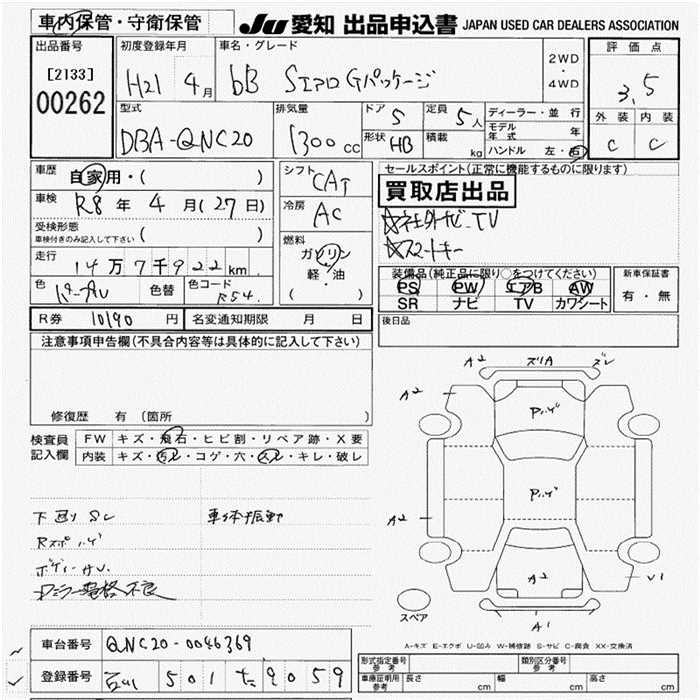 車内保管・守衛保管
JU 愛知 出品申込書 JAPAN USED CAR DEALERS ASSOCIATION
出品番号
[2133]
00262
初度登録年月
H21 4月
車名・グレード
bB SエアロGパッケージ
2WD
・
4WD
評価点
3.5
外装 内装
C C
型式
DBA-QNC20
排気量
1300cc
ドア 5
形状 HB
定員 5人
積載 kg
ディーラー・並行
モデル年式 年
ハンドル 左・右
車歴
自家用・( )
車検
R8年4月(27日)
受検形態
車検付きのみ記入して下さい ( )
走行
14万7千922km
色
パールV
色替
色コード
R54
シフト
CAT
冷房
AC
燃料
ガソリン
軽・油
( )
セールスポイント(正常に機能するものに限ります)
買取店出品
☆社外ナビ-TV
☆スマートキー
装備品(純正品に限り○をつけてください)
PS PW エアB AW
SR ナビ TV カワシート
新車保証書
有・無
後日品
R券 10190円
名変通知期限 月 日
注意事項申告欄(不具合内容等は具体的に記入して下さい)
修復歴 有(箇所 )
検査員
記入欄
FW キズ・飛石・ヒビ割・リペア跡・X要
内装 キズ・汚レ・コゲ・穴・スレ・キレ・破レ
下回りSC
車体振動
Rスポハゲ
ボディーUV
ドアミラー電格不良
A2 ズリA ズレ
A2
Pハゲ
Pハゲ
A2
A2
V1
A1
スペア
A-キズ E-エクボ U-凹み W-補修跡 S-サビ C-腐食 XX-交換済
車台番号 QNC20-0046369
登録番号 501 9059
形式指定番号
参考
類別区分番号
参考
車庫証明用
参考
長さ cm
幅 cm
高さ cm